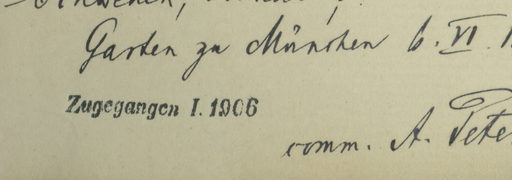 Garten zu München 6. VI.
Zugegangen I. 1906
comm. A. Pete